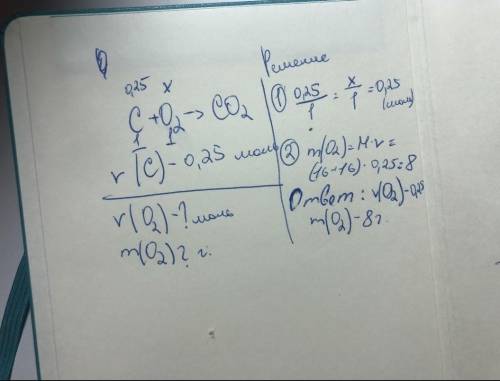 1
0,25 x
C + O₂ → CO₂
1 1
ν (C) - 0,25 моль
ν(O₂) - ? моль
m(O₂) ? г.
Решение
① 0,25/1 = x/1 = 0,25 (моль)
② m(O₂) = M · ν =
(16-16) · 0,25 = 8
Ответ: ν(O₂) - 0,25
m(O₂) - 8 г.